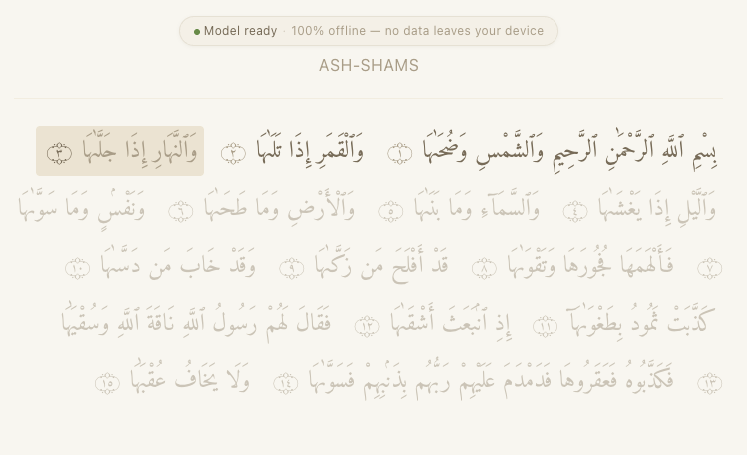 Model ready · 100% offline — no data leaves your device
ASH-SHAMS
بِسْمِ ٱللَّهِ ٱلرَّحْمَٰنِ ٱلرَّحِيمِ وَٱلشَّمْسِ وَضُحَىٰهَا ١ وَٱلْقَمَرِ إِذَا تَلَىٰهَا ٢ وَٱلنَّهَارِ إِذَا جَلَّىٰهَا ٣
وَٱلَّيْلِ إِذَا يَغْشَىٰهَا ٤ وَٱلسَّمَآءِ وَمَا بَنَىٰهَا ٥ وَٱلْأَرْضِ وَمَا طَحَىٰهَا ٦ وَنَفْسٍ وَمَا سَوَّىٰهَا
٧ فَأَلْهَمَهَا فُجُورَهَا وَتَقْوَىٰهَا ٨ قَدْ أَفْلَحَ مَن زَكَّىٰهَا ٩ وَقَدْ خَابَ مَن دَسَّىٰهَا ١٠
كَذَّبَتْ ثَمُودُ بِطَغْوَىٰهَآ ١١ إِذِ ٱنۢبَعَثَ أَشْقَىٰهَا ١٢ فَقَالَ لَهُمْ رَسُولُ ٱللَّهِ نَاقَةَ ٱللَّهِ وَسُقْيَٰهَا
١٣ فَكَذَّبُوهُ فَعَقَرُوهَا فَدَمْدَمَ عَلَيْهِمْ رَبُّهُم بِذَنۢبِهِمْ فَسَوَّىٰهَا ١٤ وَلَا يَخَافُ عُقْبَٰهَا ١٥